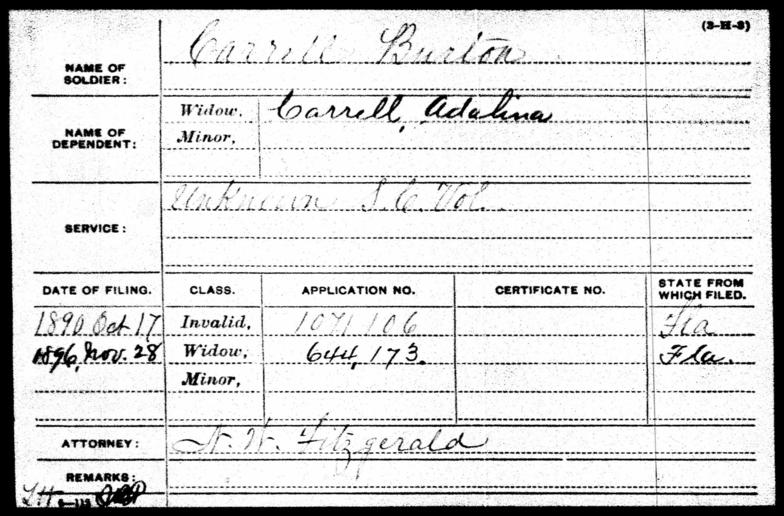 (3-H-3)
NAME OF SOLDIER: Carrell Burton
NAME OF DEPENDENT: Widow, Carrell, Adalina
Minor,
SERVICE: Unknown S.C. Vol.
DATE OF FILING. CLASS. APPLICATION NO. CERTIFICATE NO. STATE FROM WHICH FILED.
1890 Oct. 17 Invalid, 1071106 Fla
1896, Nov. 28 Widow, 644,173. Fla.
Minor,
ATTORNEY: N. W. Fitzgerald
REMARKS: